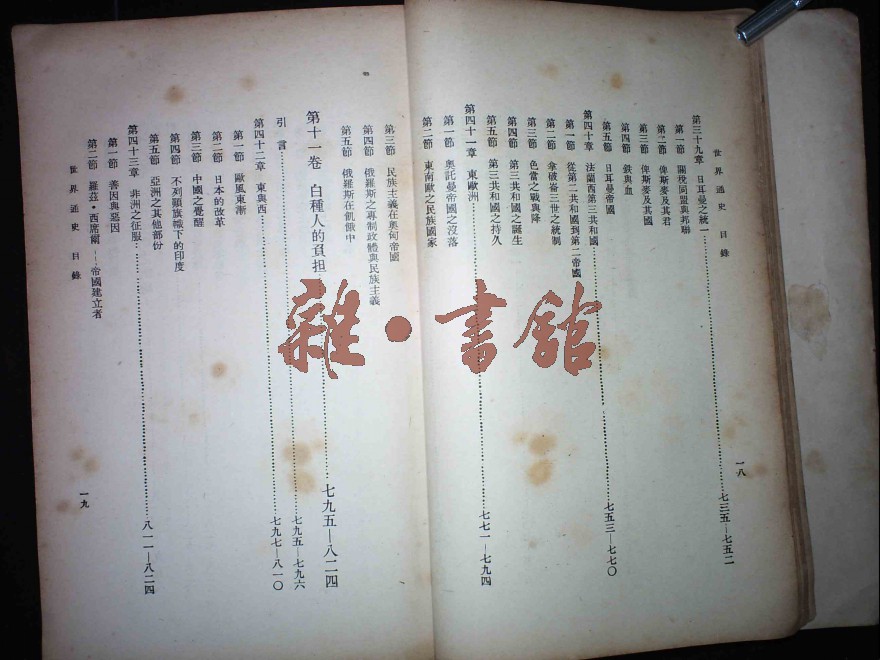 世界通史 目錄
一八
第三十九章 日耳曼之統一……七三五—七五二
第一節 關稅同盟與邦聯
第二節 俾斯麥及其君
第三節 俾斯麥及其國
第四節 鐵與血
第五節 日耳曼帝國
第四十章 法蘭西第三共和國……七五三—七七〇
第一節 從第二共和國到第二帝國
第二節 拿破崙三世之統制
第三節 色當之戰與降
第四節 第三共和國之誕生
第五節 第三共和國之持久
第四十一章 東歐洲……七七一—七九四
第一節 奧託曼帝國之沒落
第二節 東南歐之民族國家
第三節 民族主義在奧匈帝國
第四節 俄羅斯之專制政體與民族主義
第五節 俄羅斯在飢餓中
第十一卷 白種人的負担……七九五—八二四
引言……七九五—七九六
第四十二章 東與西……七九七—八一〇
第一節 歐風東漸
第二節 日本的改革
第三節 中國之覺醒
第四節 不列顛旗幟下的印度
第五節 亞洲之其他部份
第四十三章 非洲之征服……八一一—八二四
第一節 善因與惡因
第二節 羅茲·西席爾——帝國建立者
世界通史 目錄
一九
雜·書館